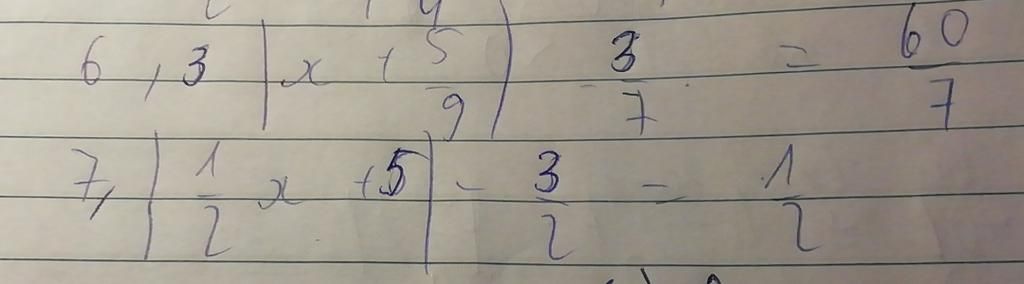 6, 3 |x + 5/9| - 3/7 = 60/7
7, |1/2 x + 5| - 3/2 = 1/2